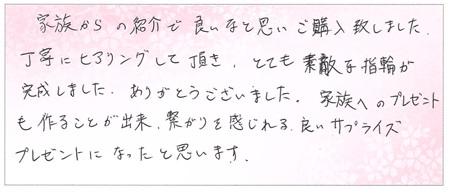 家族からの紹介で良いなと思いご購入致しました.
丁寧にヒアリングして頂き、とても素敵な指輪が
完成しました. ありがとうございました。家族へのプレゼント
も作ることが出来、繋がりを感じれる良いサプライズ
プレゼントになったと思います.